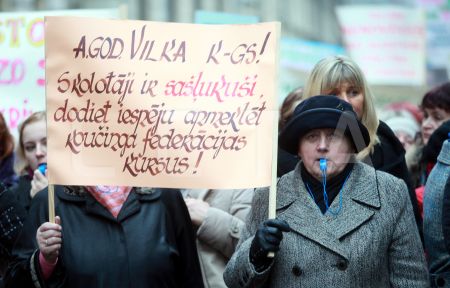 A.GOD. VILKA K-GS!
Skolotāji ir sašļukuši,
dodiet iespēju apmeklēt
koučinga federācijas
kursus!